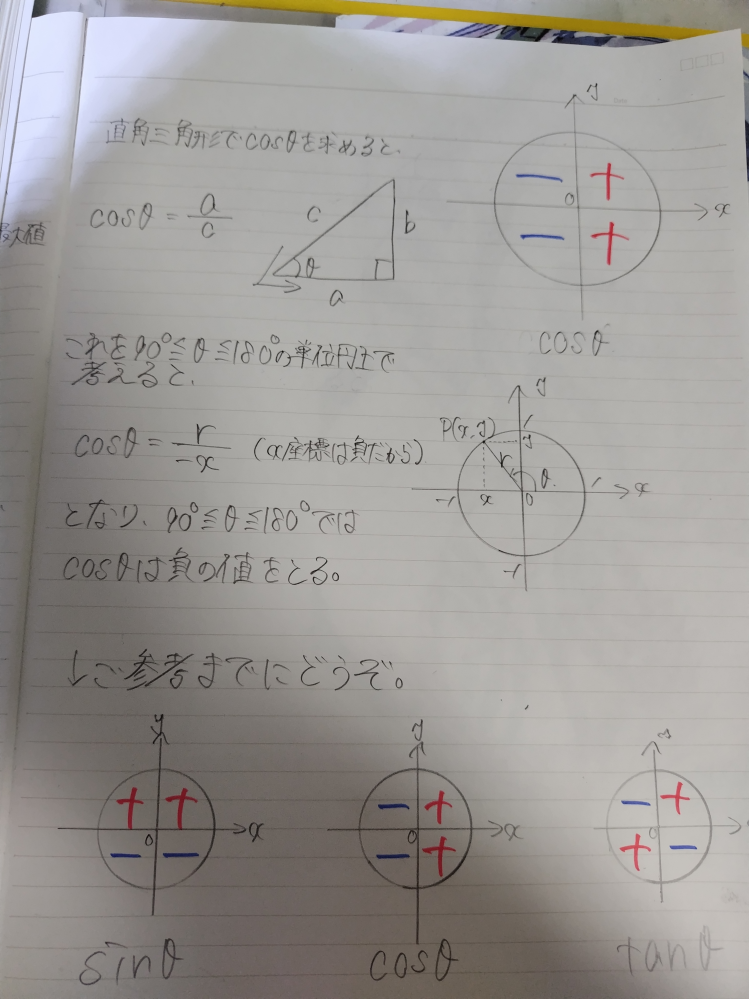 直角三角形でcosθを求めると、
cosθ = a/c
c
b
θ
a
y
− +
0
x
− +
cosθ
最大値
これを90°≦θ≦180°の単位円上で
考えると、
cosθ = r/−x (x座標は負だから)
となり、90°≦θ≦180°では
cosθは負の値をとる。
y
P(x,y)
1
y
r
θ
1
x
-1
x
0
-1
↓ご参考までにどうぞ。
y
+ +
0
x
− −
sinθ
y
− +
0
x
− +
cosθ
− +
0
+ −
tanθ